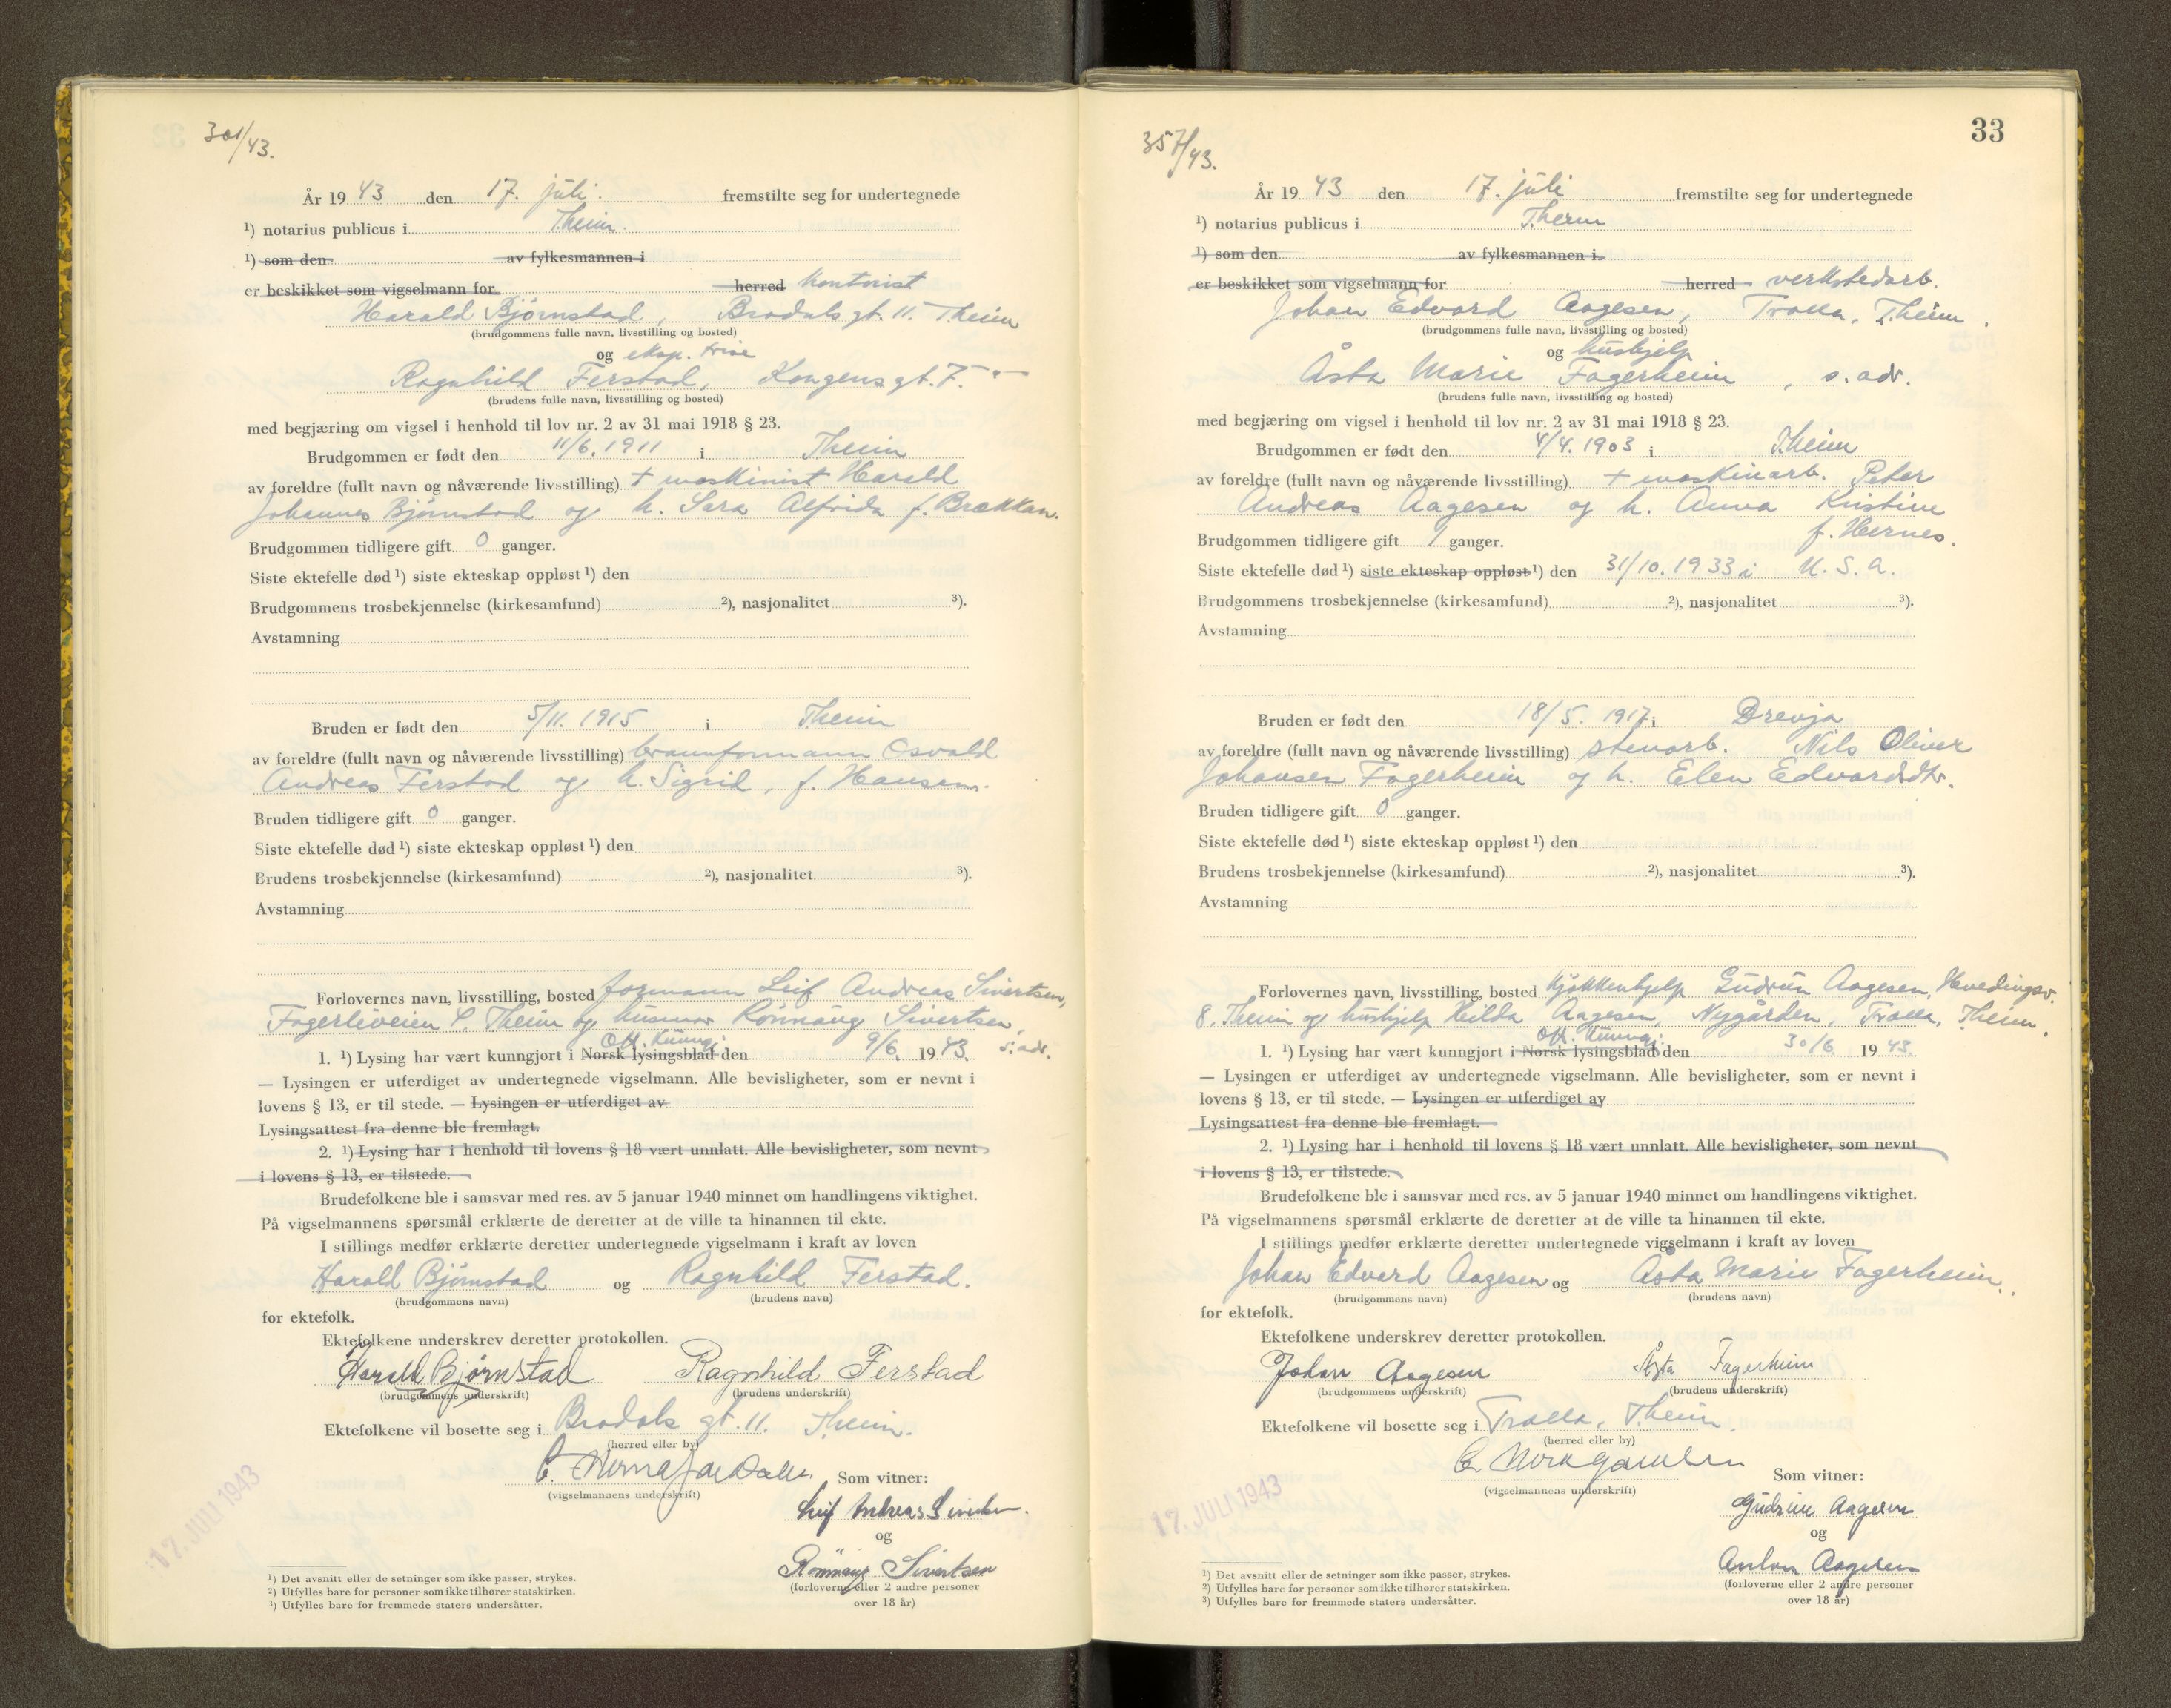 301/43.
År 19 43 den 17. juli. fremstilte seg for undertegnede
¹) notarius publicus i T.heim.
¹) som den av fylkesmannen i
er beskikket som vigselmann for herred kontorist
Harald Bjørnstad, Brodals gt. 11. T.heim
(brudgommens fulle navn, livsstilling og bosted)
og eksp. trise
Ragnhild Ferstad, Kongensgt. 7. " —
(brudens fulle navn, livsstilling og bosted)
med begjæring om vigsel i henhold til lov nr. 2 av 31 mai 1918 § 23.
Brudgommen er født den 11/6. 1911 i T.heim
av foreldre (fullt navn og nåværende livsstilling) + maskinist Harald
Johannes Bjørnstad og h. Sara Alfrida f. Brækkan.
Brudgommen tidligere gift 0 ganger.
Siste ektefelle død ¹) siste ekteskap oppløst ¹) den
Brudgommens trosbekjennelse (kirkesamfund) ²), nasjonalitet ³).
Avstamning
Bruden er født den 5/11. 1915 i T.heim
av foreldre (fullt navn og nåværende livsstilling) brannformann Osvald
Andreas Ferstad og h. Sigrid, f. Hansen.
Bruden tidligere gift 0 ganger.
Siste ektefelle død ¹) siste ekteskap oppløst ¹) den
Brudens trosbekjennelse (kirkesamfund) ²), nasjonalitet ³).
Avstamning
Forlovernes navn, livsstilling, bosted formann Leif Andreas Sivertsen,
Fagerliveien T.heim og husmor Rönnaug Sivertsen,
Off. kunngj. s. adr.
1. ¹) Lysing har vært kunngjort i Norsk lysingsblad den 9/6. 19 43.
— Lysingen er utferdiget av undertegnede vigselmann. Alle bevisligheter, som er nevnt i
lovens § 13, er til stede. — Lysingen er utferdiget av
Lysingsattest fra denne ble fremlagt.
2. ¹) Lysing har i henhold til lovens § 18 vært unnlatt. Alle bevisligheter, som nevnt
i lovens § 13, er tilstede.
Brudefolkene ble i samsvar med res. av 5 januar 1940 minnet om handlingens viktighet.
På vigselmannens spørsmål erklærte de deretter at de ville ta hinannen til ekte.
I stillings medfør erklærte deretter undertegnede vigselmann i kraft av loven
Harald Bjørnstad og Ragnhild Ferstad.
(brudgommens navn) (brudens navn)
for ektefolk.
Ektefolkene underskrev deretter protokollen.
Harald Bjørnstad Ragnhild Ferstad
(brudgommens underskrift) (brudens underskrift)
Ektefolkene vil bosette seg i Brodals gt. 11. T.heim.
(herred eller by)
Som vitner:
(vigselmannens underskrift)
Leif Andreas Sivertsen.
og
Rönnaug Sivertsen
(forloverne eller 2 andre personer
over 18 år)
17. JULI 1943
¹) Det avsnitt eller de setninger som ikke passer, strykes.
²) Utfylles bare for personer som ikke tilhører statskirken.
³) Utfylles bare for fremmede staters undersåtter.
33
357/43.
År 19 43 den 17. juli fremstilte seg for undertegnede
¹) notarius publicus i T.heim
¹) som den av fylkesmannen i
er beskikket som vigselmann for herred verkstedarb.
Johan Edvard Aagesen, Trolla, T.heim.
(brudgommens fulle navn, livsstilling og bosted)
og hushjelp
Åsta Marie Fagerheim, s. adr.
(brudens fulle navn, livsstilling og bosted)
med begjæring om vigsel i henhold til lov nr. 2 av 31 mai 1918 § 23.
Brudgommen er født den 4/4. 1903 i T.heim
av foreldre (fullt navn og nåværende livsstilling) + maskinarb. Peter
Andreas Aagesen og h. Anna Kristine
f. Hernes.
Brudgommen tidligere gift 1 ganger.
Siste ektefelle død ¹) siste ekteskap oppløst ¹) den 31/10. 1933 i U.S.A.
Brudgommens trosbekjennelse (kirkesamfund) ²), nasjonalitet ³).
Avstamning
Bruden er født den 18/5. 1917 i Drevja
av foreldre (fullt navn og nåværende livsstilling) stenarb. Nils Oliver
Johansen Fagerheim og h. Elen Edvardsdtr.
Bruden tidligere gift 0 ganger.
Siste ektefelle død ¹) siste ekteskap oppløst ¹) den
Brudens trosbekjennelse (kirkesamfund) ²), nasjonalitet ³).
Avstamning
Forlovernes navn, livsstilling, bosted kjøkkenhjelp Gudrun Aagesen, Havedingsv.
8. T.heim og hushjelp Hilda Aagesen, Nygården, Trolla, T.heim.
Off. kunngj.
1. ¹) Lysing har vært kunngjort i Norsk lysingsblad den 30/6 19 43.
— Lysingen er utferdiget av undertegnede vigselmann. Alle bevisligheter, som er nevnt i
lovens § 13, er til stede. — Lysingen er utferdiget av
Lysingsattest fra denne ble fremlagt.
2. ¹) Lysing har i henhold til lovens § 18 vært unnlatt. Alle bevisligheter, som nevnt
i lovens § 13, er tilstede.
Brudefolkene ble i samsvar med res. av 5 januar 1940 minnet om handlingens viktighet.
På vigselmannens spørsmål erklærte de deretter at de ville ta hinannen til ekte.
I stillings medfør erklærte deretter undertegnede vigselmann i kraft av loven
Johan Edvard Aagesen og Åsta Marie Fagerheim.
(brudgommens navn) (brudens navn)
for ektefolk.
Ektefolkene underskrev deretter protokollen.
Johan Aagesen Åsta Fagerheim
(brudgommens underskrift) (brudens underskrift)
Ektefolkene vil bosette seg i Trolla, T.heim.
(herred eller by)
Som vitner:
(vigselmannens underskrift)
Gudrun Aagesen
og
Anton Aagesen
(forloverne eller 2 andre personer
over 18 år)
17. JULI 1943
¹) Det avsnitt eller de setninger som ikke passer, strykes.
²) Utfylles bare for personer som ikke tilhører statskirken.
³) Utfylles bare for fremmede staters undersåtter.